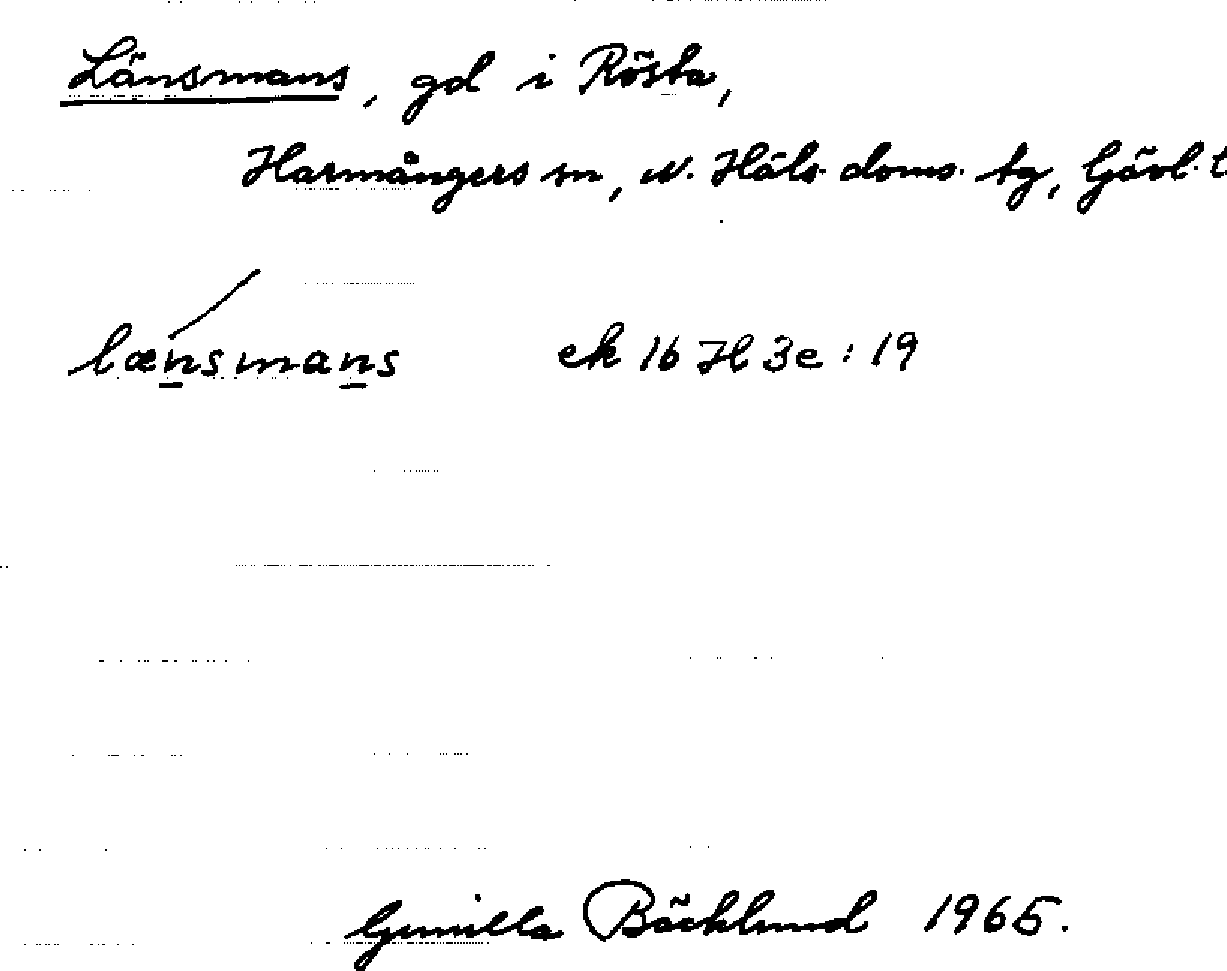 Länsmans, gd i Rösta,
Harmångers sn, N. Häls. doms. tg, Gävl. l
lænsmans ek 16 H 3e : 19
Gunilla Bäcklund 1965.